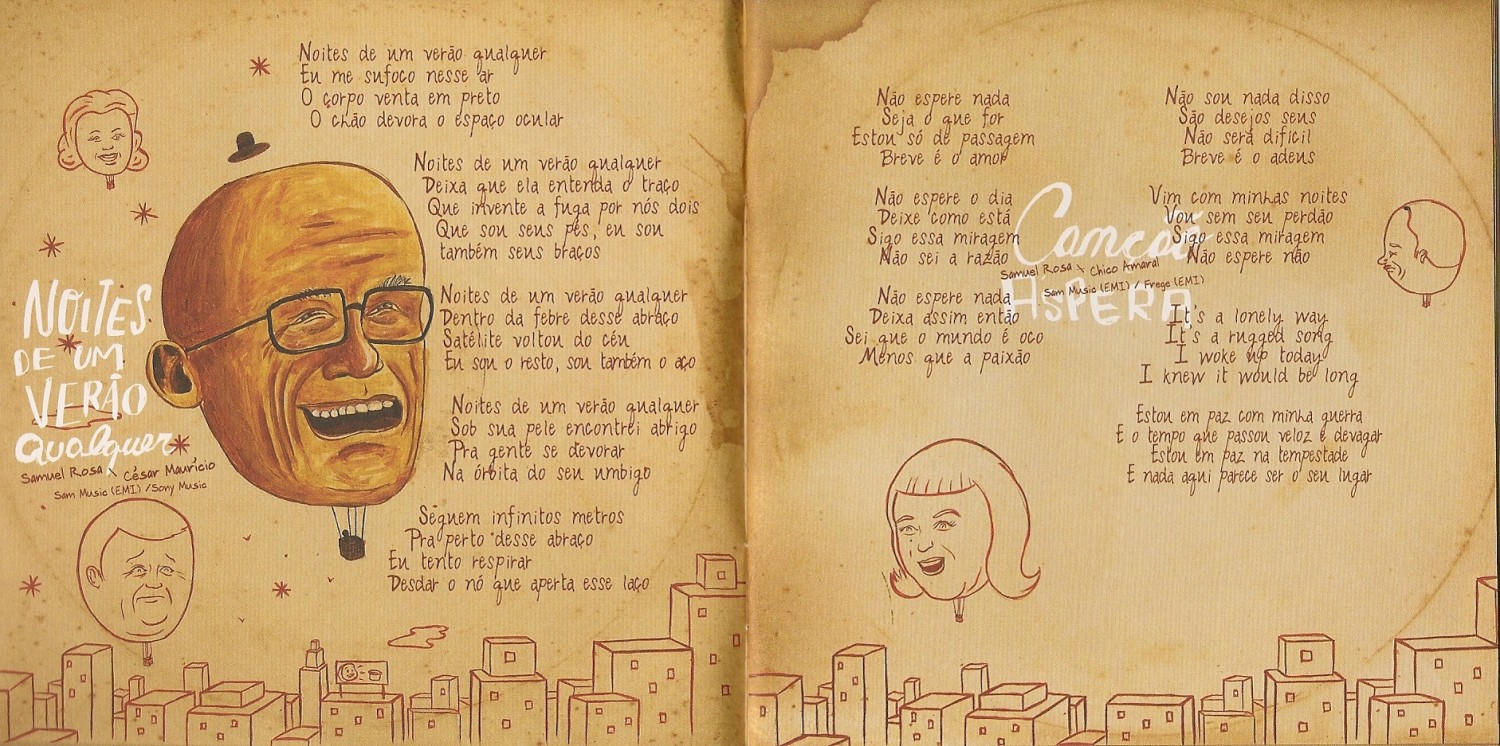 Noites de um verão qualquer
Eu me sufoco nesse ar
O corpo venta em preto
O chão devora o espaço ocular
Noites de um verão qualquer
Deixa que ela entenda o traço
Que invente a fuga por nós dois
Que sou seus pés, eu sou
também seus braços
Noites de um verão qualquer
Dentro da febre desse abraço
Satélite voltou do céu
Eu sou o resto, sou também o aço
Noites de um verão qualquer
Sob sua pele encontrei abrigo
Pra gente se devorar
Na órbita do seu umbigo
Seguem infinitos metros
Pra perto desse abraço
Eu tento respirar
Desdar o nó que aperta esse laço
NOITES
DE UM
VERÃO
Qualquer
Samuel Rosa \ César Maurício
Sam Music (EMI) / Sony Music
Não espere nada
Seja o que for
Estou só de passagem
Breve é o amor
Não espere o dia
Deixe como está
Sigo essa miragem
Não sei a razão
Não espere nada
Deixa assim então
Sei que o mundo é oco
Menos que a paixão
Canção
ASPERA
Samuel Rosa \ Chico Amaral
Sam Music (EMI) / Frege (EMI)
Não sou nada disso
São desejos seus
Não será difícil
Breve é o adeus
Vim com minhas noites
Vou sem seu perdão
Sigo essa miragem
Não espere não
It's a lonely way
It's a rugged song
I woke up today
I knew it would be long
Estou em paz com minha guerra
E o tempo que passou veloz é devagar
Estou em paz na tempestade
E nada aqui parece ser o seu lugar